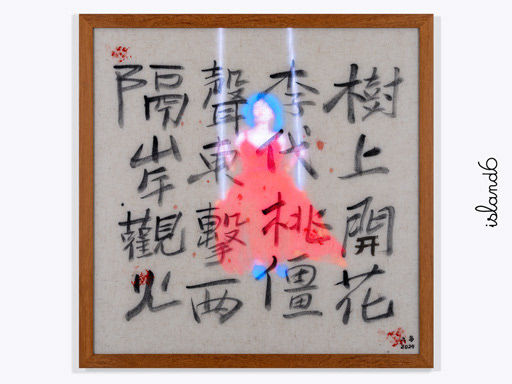 樹上開花
李代桃僵
聲東擊西
隔岸觀火
2024
island6